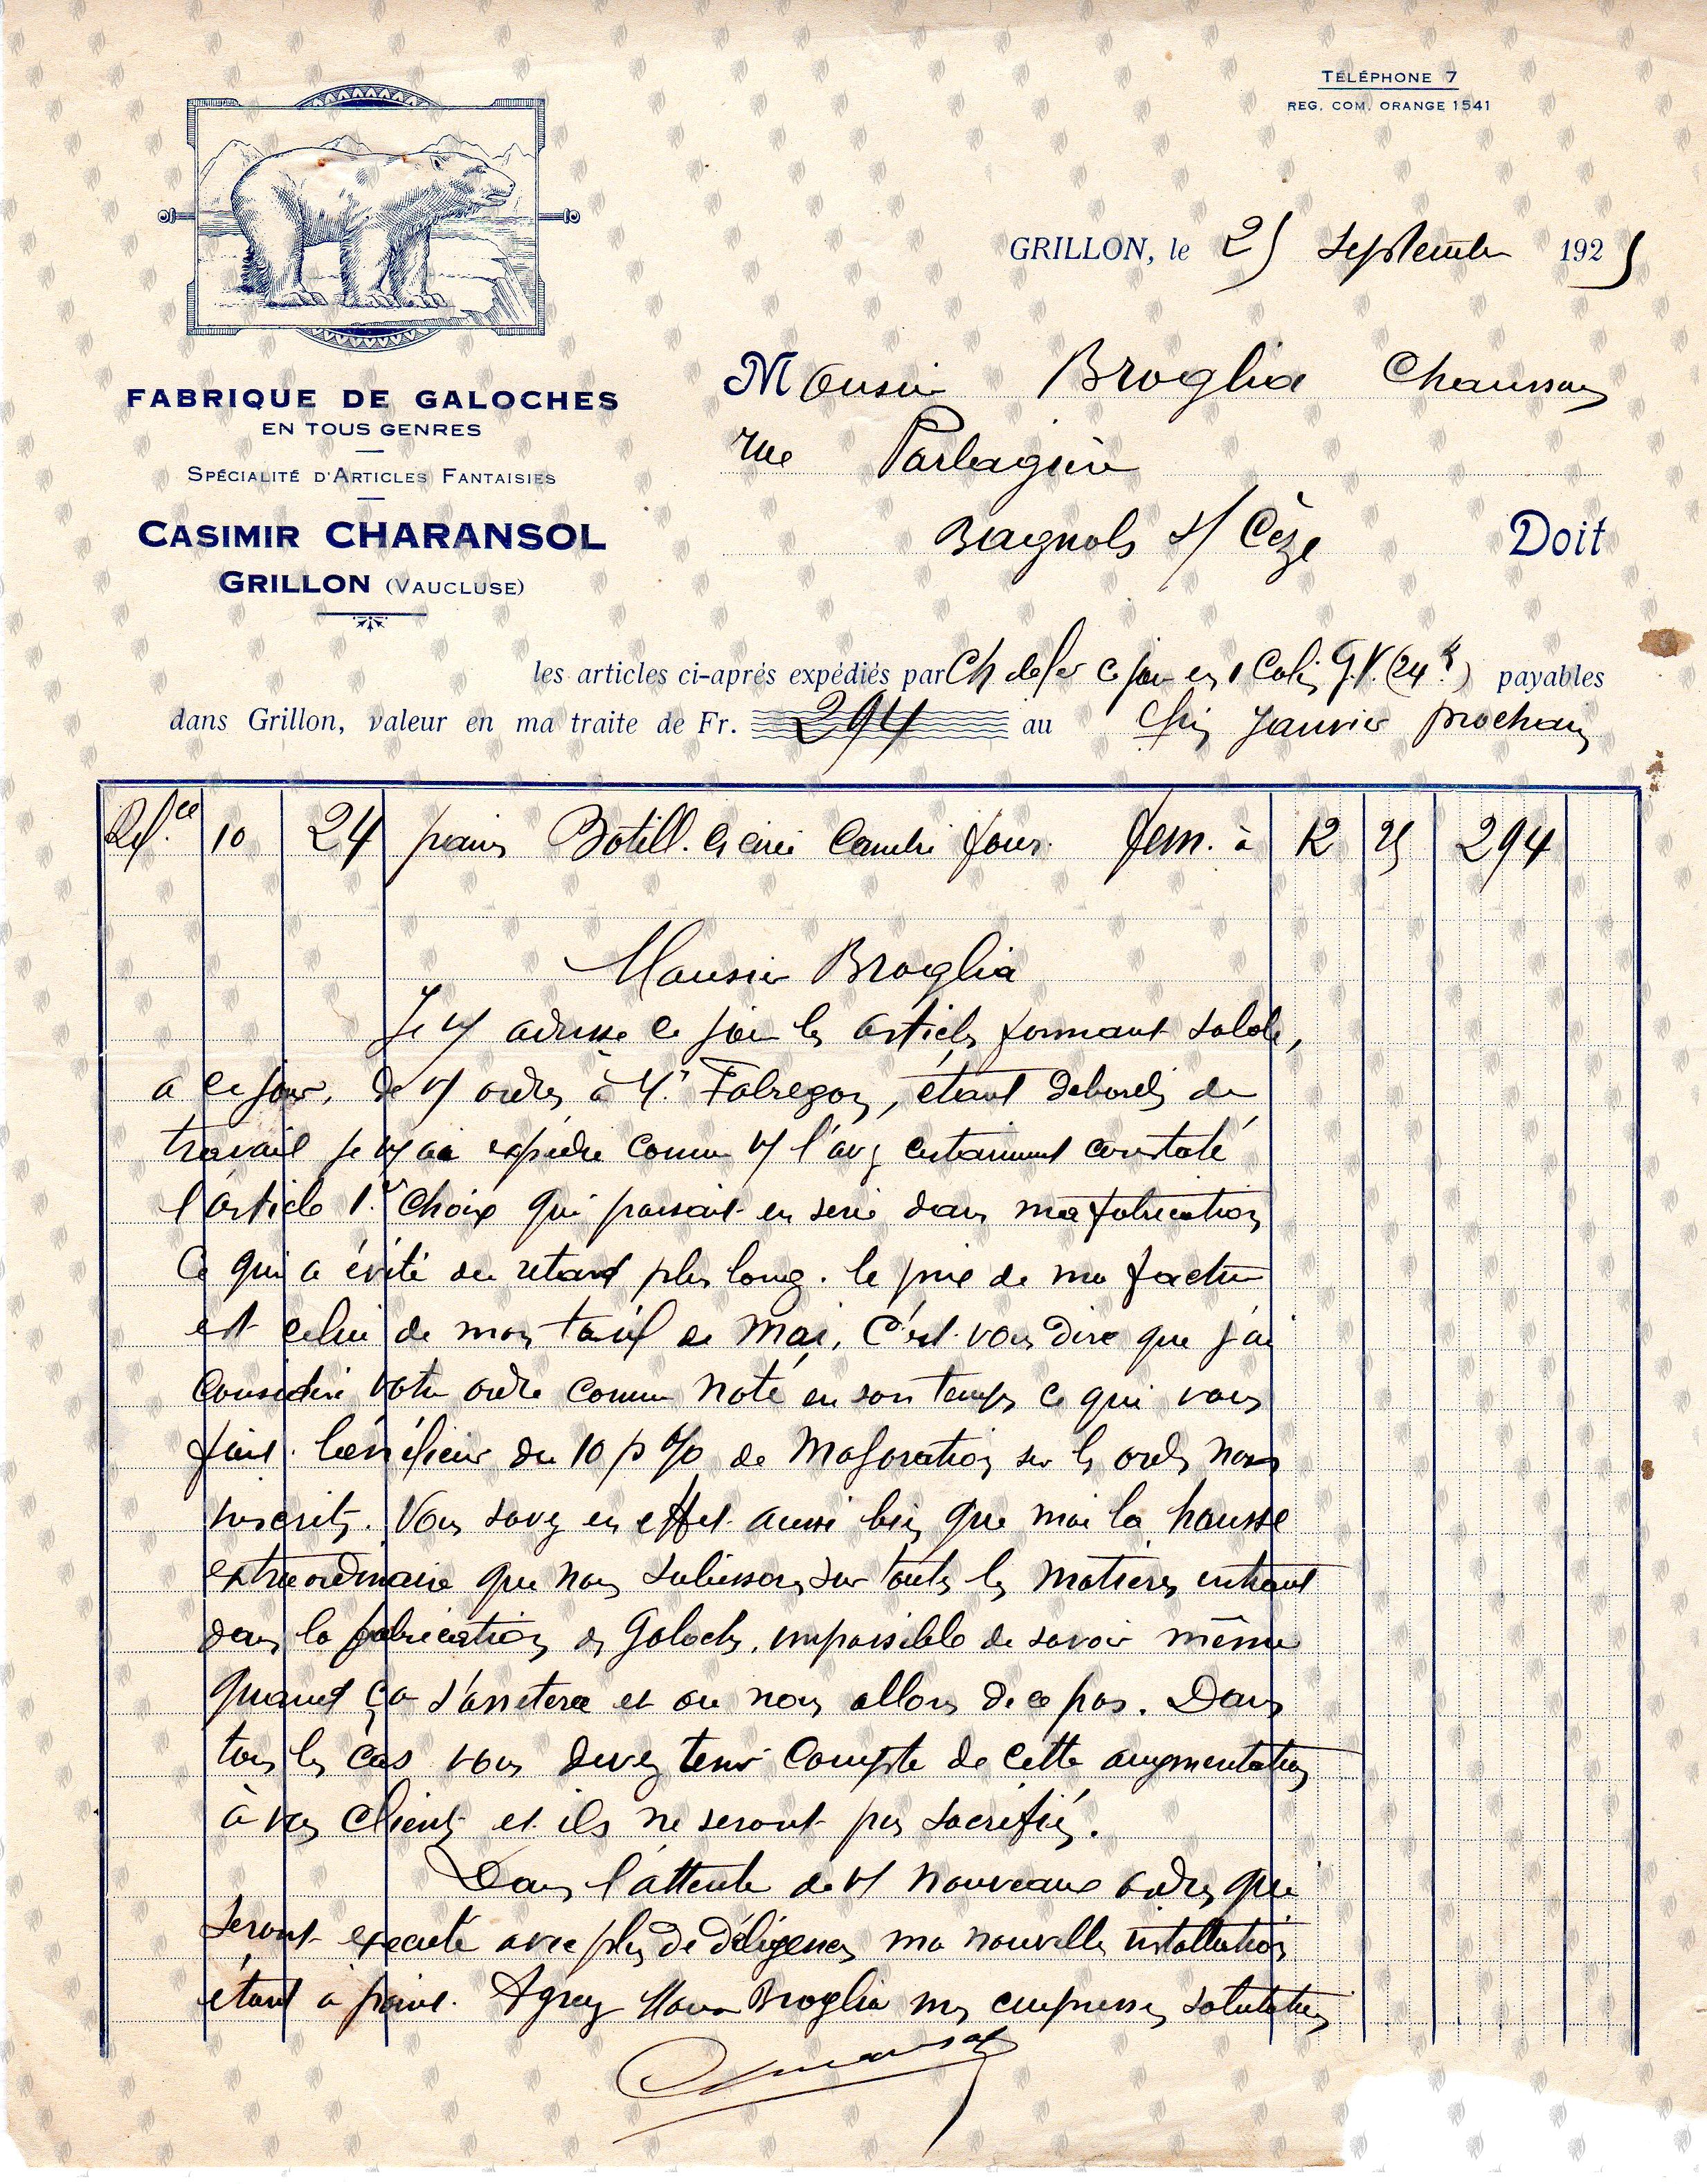 TÉLÉPHONE 7
REG. COM. ORANGE 1541
GRILLON, le 25 Septembre 1925
FABRIQUE DE GALOCHES
EN TOUS GENRES
SPÉCIALITÉ D'ARTICLES FANTAISIES
CASIMIR CHARANSOL
GRILLON (VAUCLUSE)
Monsieur Broglia Chaussures
rue
Bagnols s/ Cèze Doit
les articles ci-après expédiés par Ch de fer ce jour en 1 Colis G.V. (24 k) payables
dans Grillon, valeur en ma traite de Fr. 294 au fin Janvier prochain
Ref.ce 10 24 paires Botill. Cirée Cambré four. fem. à 12 25 294
Monsieur Broglia
Je v/ adresse ce jour les articles formant solde,
a ce jour, de v/ ordres à Mr Fabregon, étant débordé de
travail je v/ ai expédié comme v/ l'avez certainement constaté
l'article 1er Choix qui passait en serie dans ma fabrication
Ce qui a évité du retard plus long. le prix de ma facture
est celui de mon tarif de Mai, C'est vous dire que j'ai
Considéré votre ordre comme noté en son temps ce qui vous
fait bénéficier du 10 p % de Majoration sur les ordres non
inscrits. Vous savez en effet aussi bien que moi la hausse
extraordinaire que nous subissons sur toutes les matieres entrant
dans la fabrication des Galoches, impossible de savoir même
quand ça s'arretera et ou nous allons de ce pas. Dans
tous les cas vous devez tenir Compte de cette augmentation
à vos Clients et ils ne seront pas sacrifiés.
Dans l'attente de v/ nouveaux ordres qui
seront executé avec plus de déligences ma nouvelle installation
étant à point. Agréez Monsr Broglia mes empressées salutations
Charansol